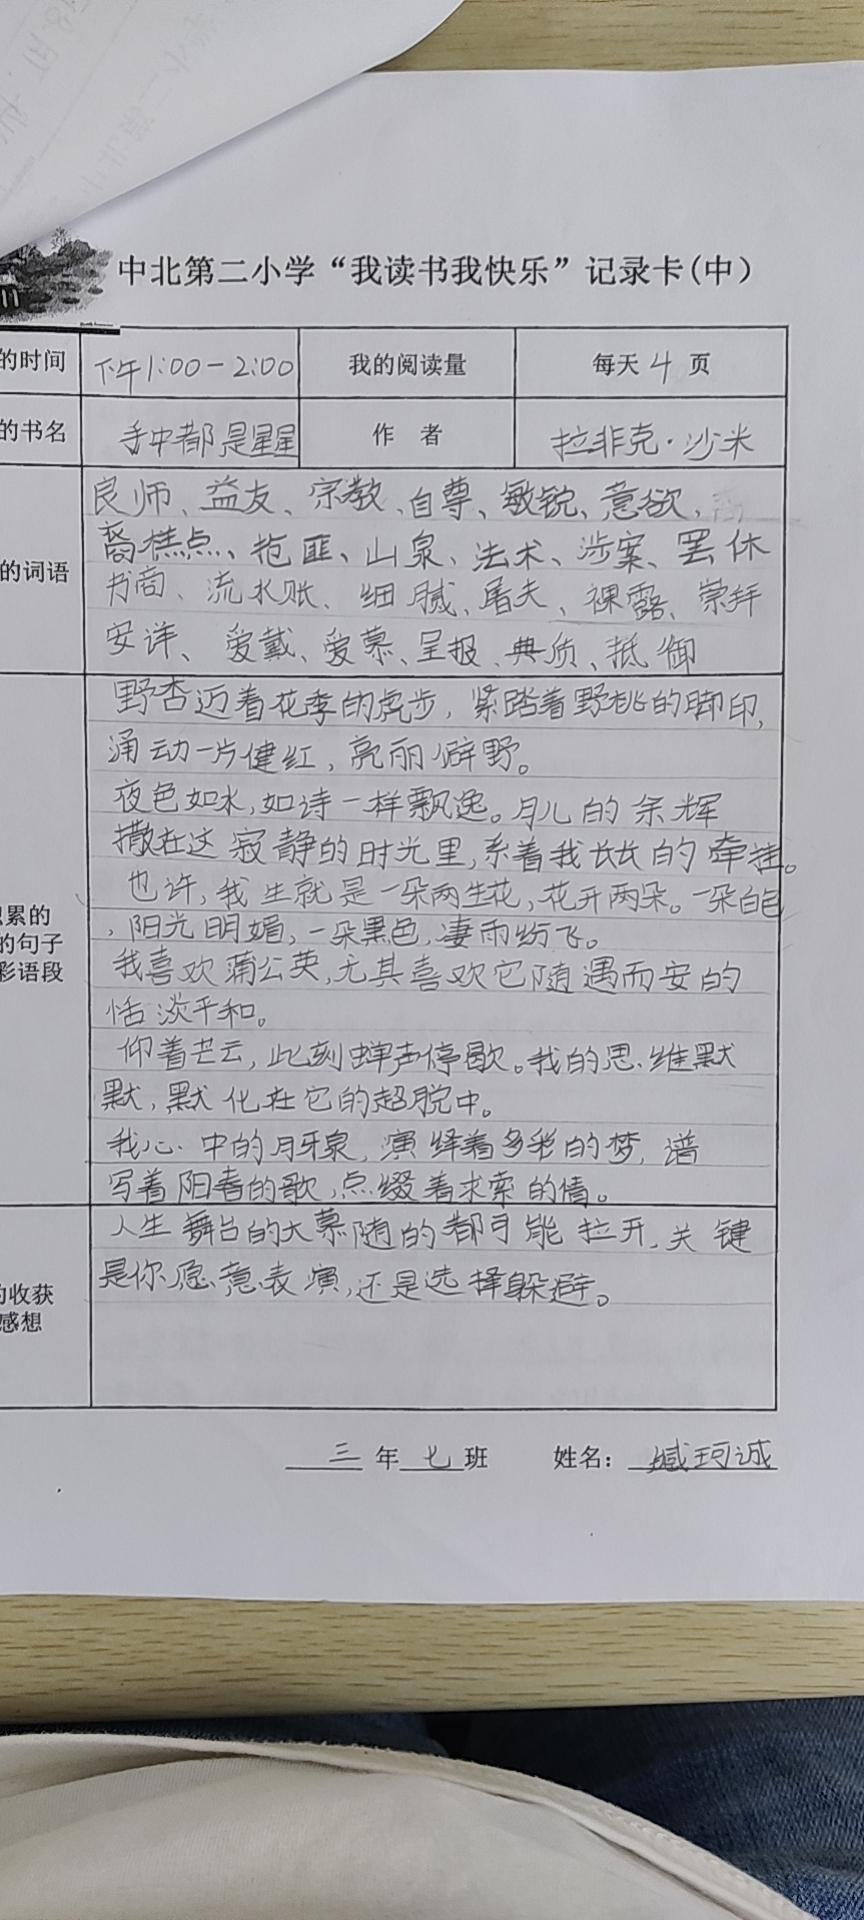 中北第二小学“我读书我快乐”记录卡(中)
的时间 下午1:00-2:00 我的阅读量 每天4页
的书名 手中都是星星 作者 拉非克·沙米
的词语
良师、益友、宗教、自尊、敏锐、意欲、
糕点、抢匪、山泉、法术、涉案、罢休
书商、流水账、细腻、屠夫、裸露、崇拜
安详、爱戴、爱慕、呈报、典质、抵御
积累的
的句子
彩语段
野杏迈着花季的虎步，紧踏着野桃的脚印，
涌动一片健红，亮丽僻野。
夜色如水，如诗一样飘逸。月儿的余辉
撒在这寂静的时光里，系着我长长的牵挂。
也许，我生就是一朵两生花，花开两朵。一朵白色
，阳光明媚，一朵黑色，凄雨纷飞。
我喜欢蒲公英，尤其喜欢它随遇而安的
恬淡平和。
仰着芒云，此刻蝉声停歇。我的思维默
默，默化在它的超脱中。
我心中的月牙泉，演绎着多彩的梦，谱
写着阳春的歌，点缀着求索的情。
的收获
感想
人生舞台的大幕随的都可能拉开，关键
是你愿意表演，还是选择躲避。
三年七班 姓名：臧珂诚